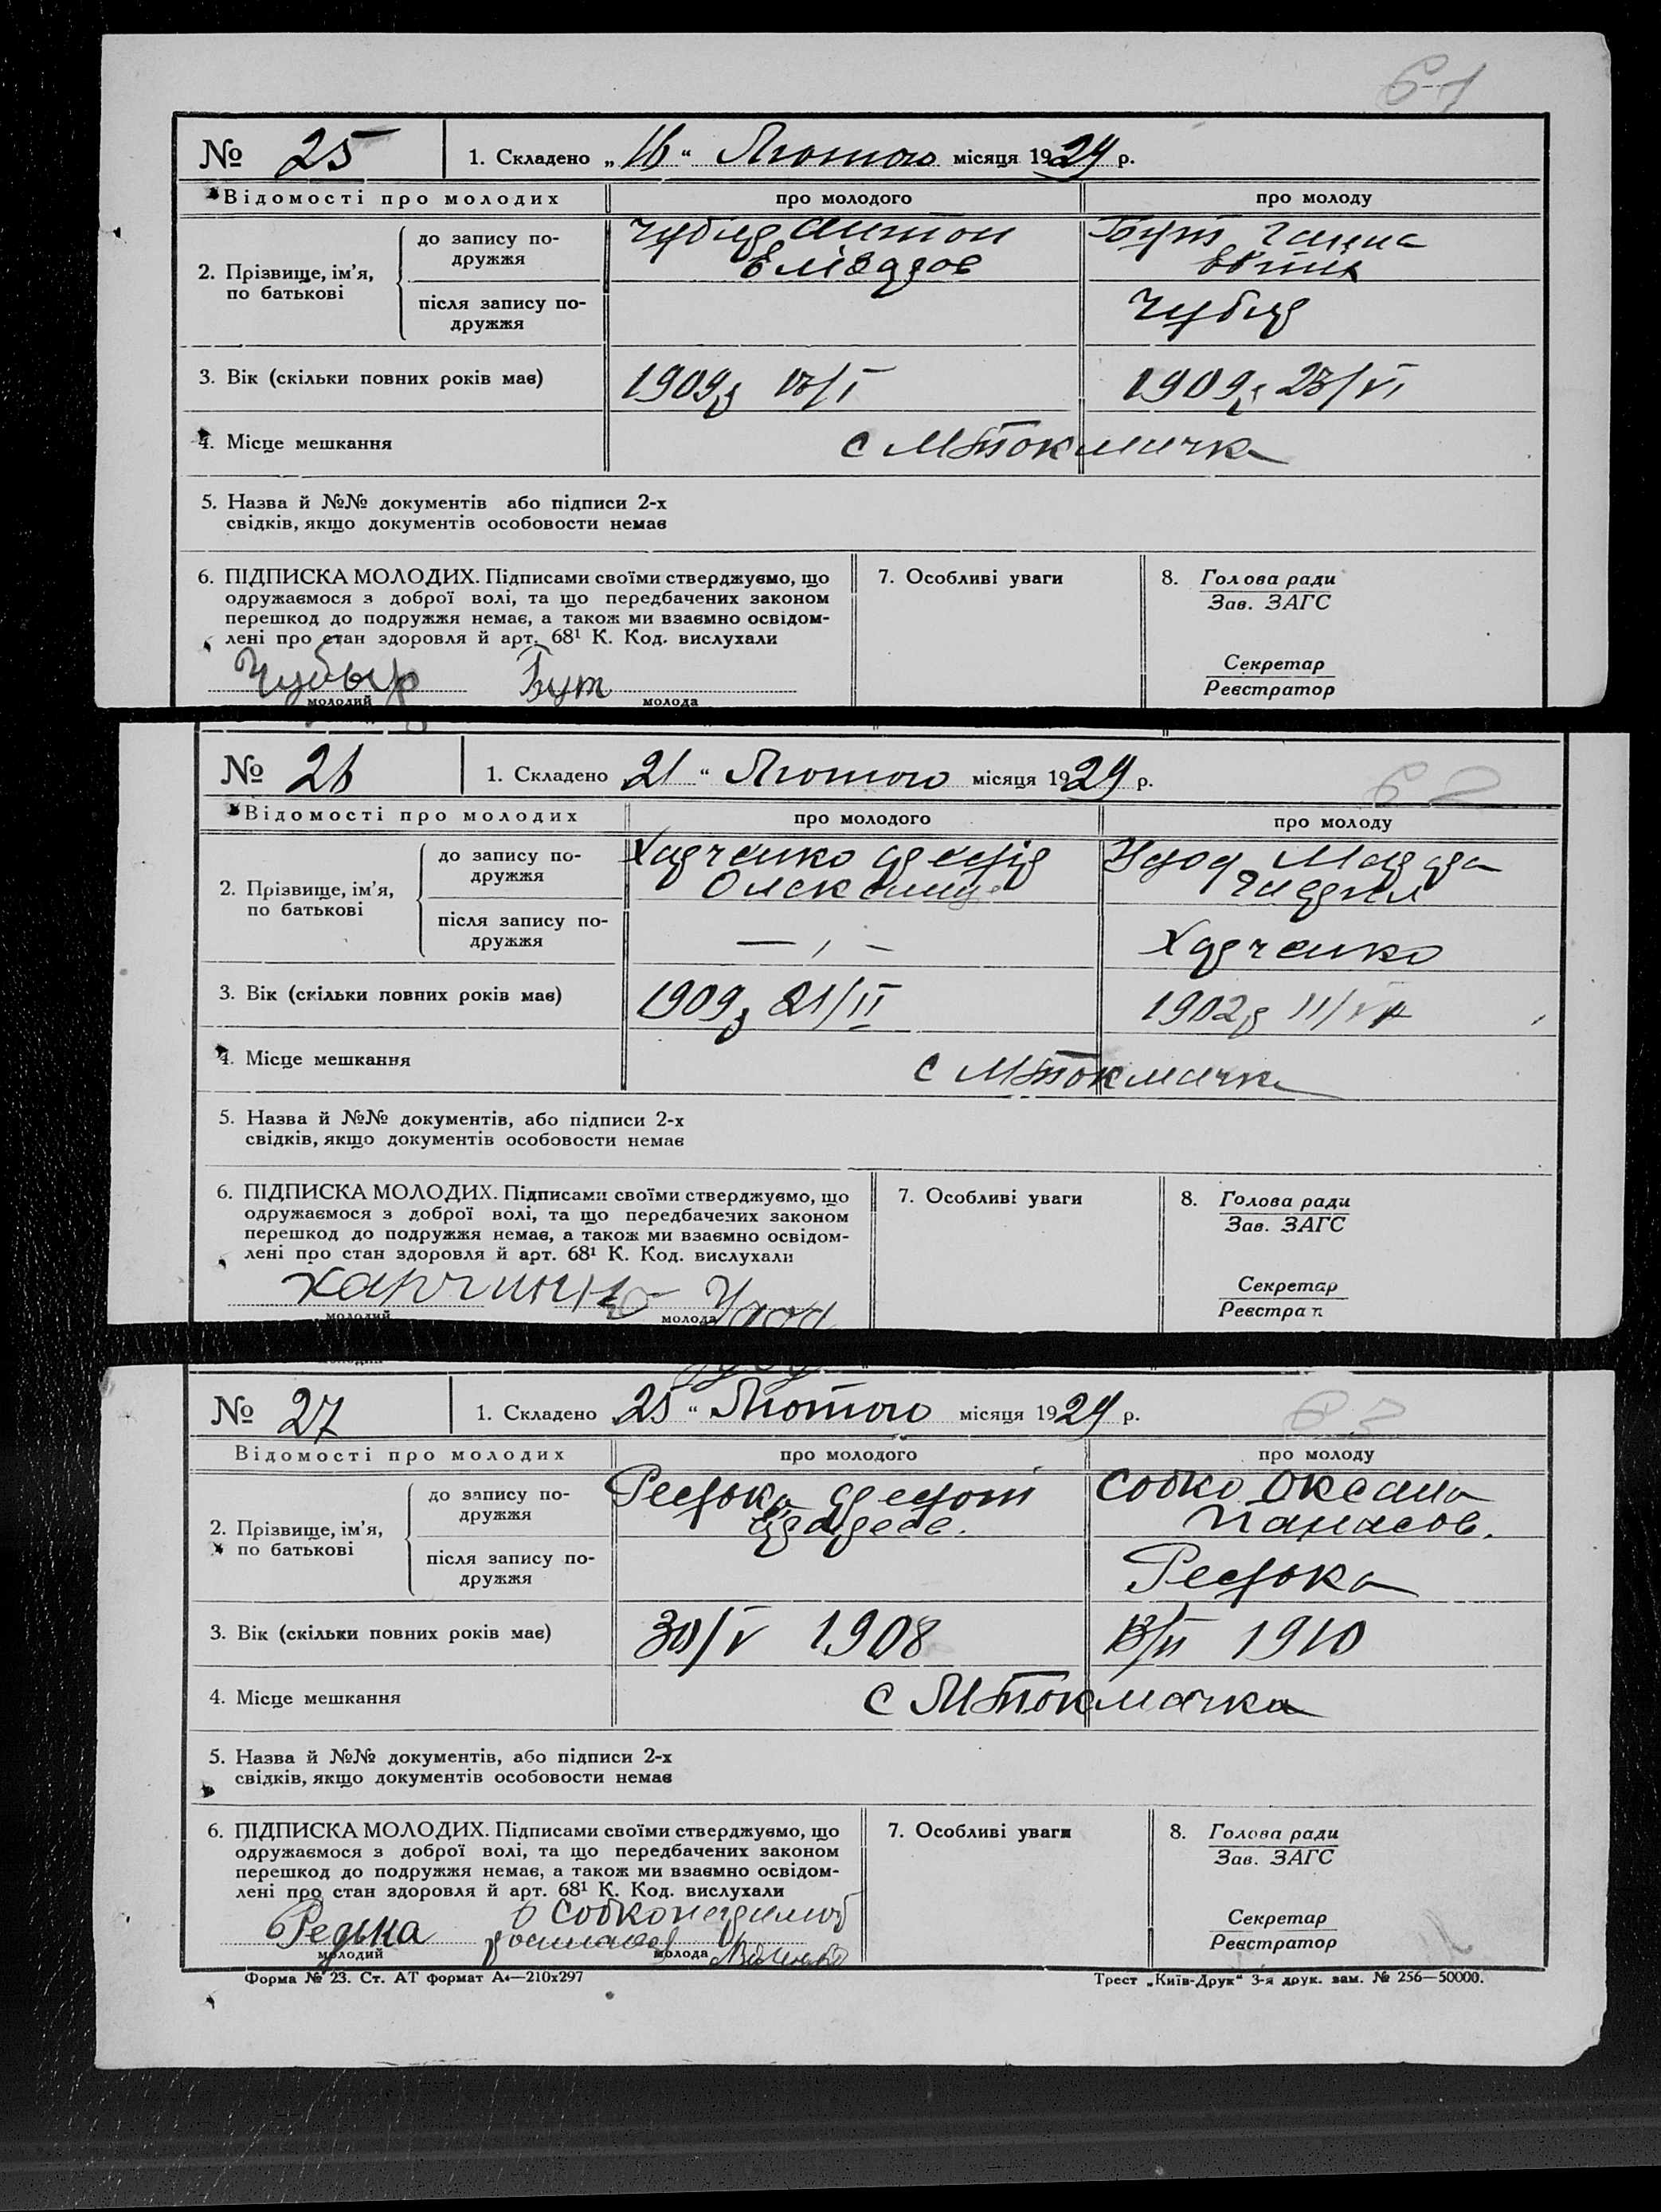 61
№ 25 1. Складено „16“ Лютого місяця 1929 р.
Відомості про молодих про молодого про молоду
2. Прізвище, ім'я, по батькові
до запису подружжя Чубир Антон Бут Ганна
після запису подружжя Чубир
3. Вік (скільки повних років має) 1909р 1909р 23/VI
4. Місце мешкання с МТокмачка
5. Назва й №№ документів або підписи 2-х
свідків, якщо документів особовости немає
6. ПІДПИСКА МОЛОДИХ. Підписами своїми стверджуємо, що
одружаємося з доброї волі, та що передбачених законом
перешкод до подружжя немає, а також ми взаємно освідом-
лені про стан здоровля й арт. 68¹ К. Код. вислухали
Чубыр Бут
молодий молода
7. Особливі уваги
8. Голова ради
Зав. ЗАГС
Секретар
Реєстратор
62
№ 26 1. Складено 21“ Лютого місяця 1929 р.
Відомості про молодих про молодого про молоду
2. Прізвище, ім'я, по батькові
до запису подружжя Харченко
після запису подружжя Харченко
3. Вік (скільки повних років має) 1909р 21/II 1902р
4. Місце мешкання с МТокмачка
5. Назва й №№ документів, або підписи 2-х
свідків, якщо документів особовости немає
6. ПІДПИСКА МОЛОДИХ. Підписами своїми стверджуємо, що
одружаємося з доброї волі, та що передбачених законом
перешкод до подружжя немає, а також ми взаємно освідом-
лені про стан здоровля й арт. 68¹ К. Код. вислухали
молодий молода
7. Особливі уваги
8. Голова ради
Зав. ЗАГС
Секретар
63
№ 27 1. Складено 25“ Лютого місяця 1929 р.
Відомості про молодих про молодого про молоду
2. Прізвище, ім'я, по батькові
до запису подружжя Редька Собко Оксана
Панасов.
після запису подружжя Редька
3. Вік (скільки повних років має) 30/V 1908 1910
4. Місце мешкання с МТокмачка
5. Назва й №№ документів, або підписи 2-х
свідків, якщо документів особовости немає
6. ПІДПИСКА МОЛОДИХ. Підписами своїми стверджуємо, що
одружаємося з доброї волі, та що передбачених законом
перешкод до подружжя немає, а також ми взаємно освідом-
лені про стан здоровля й арт. 68¹ К. Код. вислухали
Редька Собко
молодий молода
7. Особливі уваги
8. Голова ради
Зав. ЗАГС
Секретар
Реєстратор
Форма № 23. Ст. АТ формат А4—210х297 Трест „Київ-Друк“ 3-я друк. зам. № 256—50000.